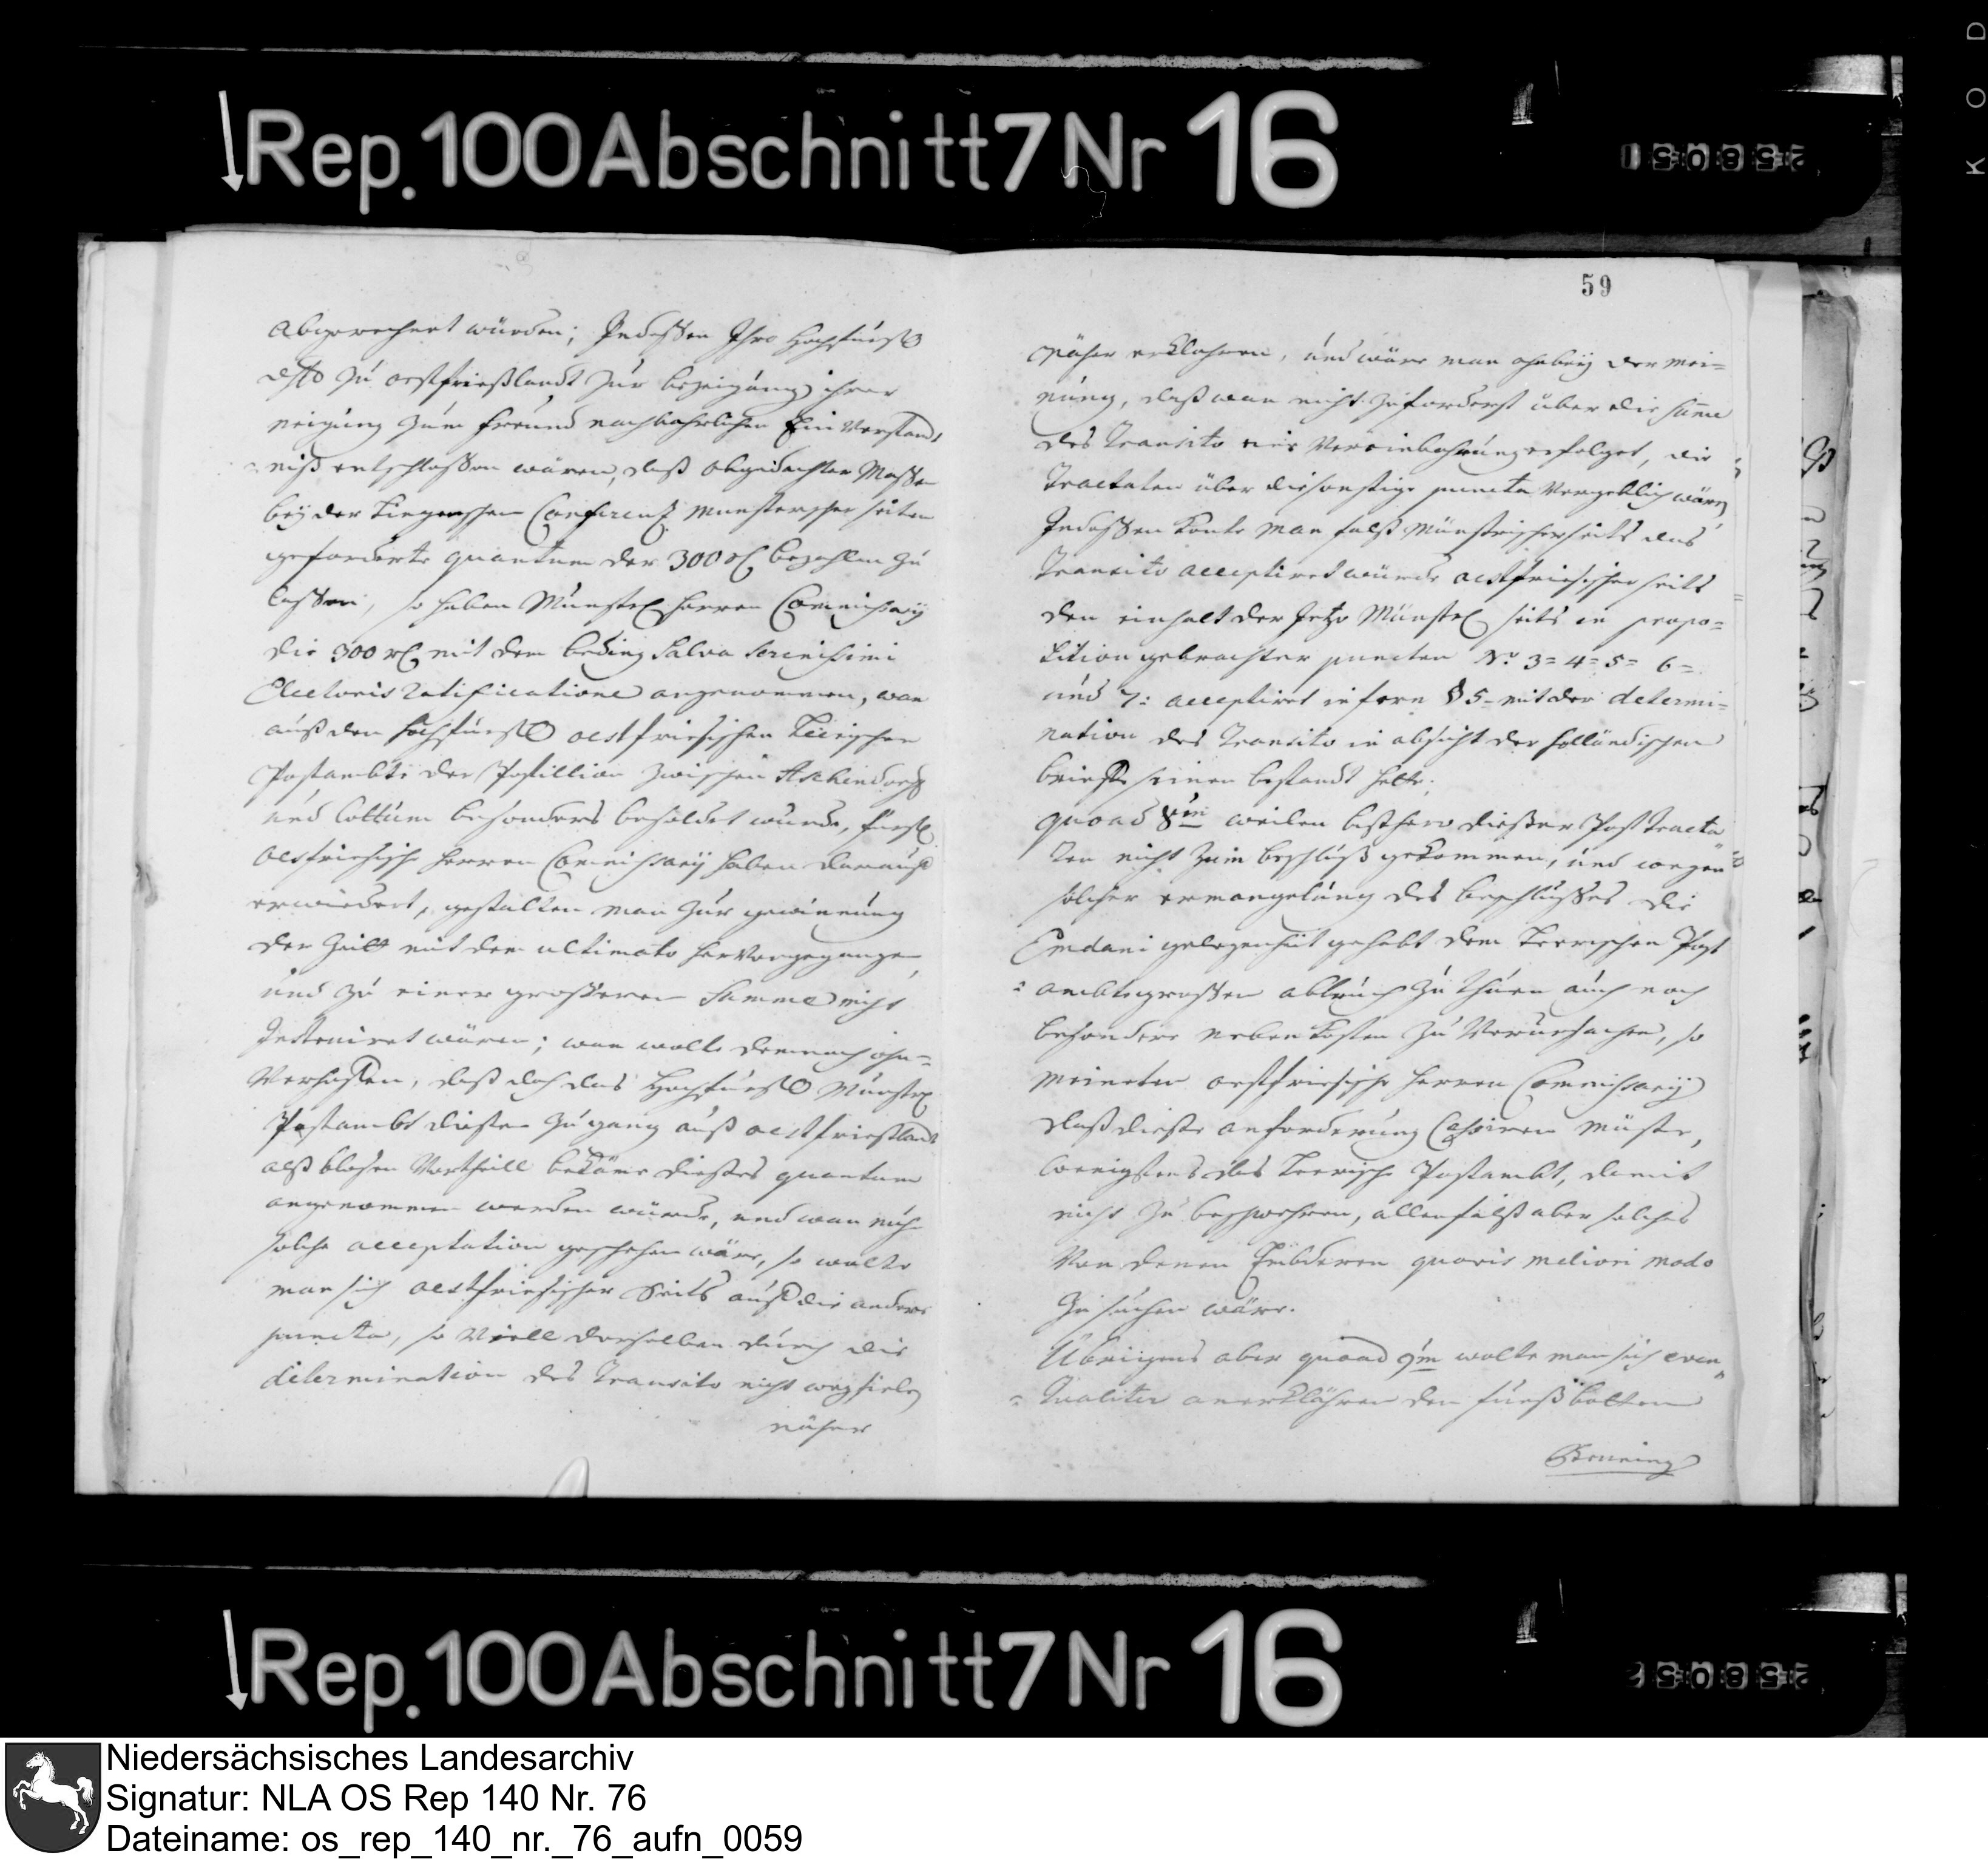 Rep. 100 Abschnitt 7 Nr 16
abgerechnet würden; Indeßen Ihro Hochfürstl
dhlt zu ostfrießlandt zur bezeigung ihrer
neigung zum freund nachbahrlichen Ein Verstand,
niß entschlossen wären, daß obgedachter Massen
beÿ der Lingenschen Conferentz Munsterscher seiten
geforderte quantum der 300 rl bezahlen zu
lassen, so haben Münstrl Herren Commissarÿ
die 300 rl mit dem beding salva serenissimi
Electoris ratificatione angenommen, wan
auß dem hochfürstl oestfriesischen Leerischen
Postambte der Postillion zwischen Aschendorff
und Lottum besonders besoldet wurde, fürstl
oestfriesische Herren Commissarÿ haben darauff
erwiedert, gestalten man zur gewinnung
der Zeitt mit dem ultimato hervorgegangen
und zu einer grösseren Summe nicht
Instruiret wären; man wolte demnach ohn-
Verhoffen, daß doch das Hochfürstl Münstrl
Postambt diesen Zugang auß oestfrießlandt
alß blosen Vortheill bekäme dießes quantum
angenommen werden würde, und wan nuhn
solche acceptation geschehen wäre, so wolte
man sich oestfriesischer Seits auff die andere
puncta, so Viell derselben durch die
determination des Transito nicht wegfielen
näher
59
näher erklahren, und wäre man ohnbeÿ der mei=
nung, daß wan nicht zuforderst über die summe
des Transito eine Vereinbahrung erfolget, die
Tractaten über die sonstige puncta Vergeblich wären
Indessen konte man falß Münsterischerseits das
Transito acceptiret würde oestfriesischer seits
den einhalt der Jetzo Münstrl seits in propo=
sition gebrachter puncten No. 3= 4= 5= 6=
und 7: acceptiret in fern § 5 mit der determi=
nation des Transito in absicht der holländischen
brieffe seinen bestandt hette.
quoad 8um weilen bisthero dießer Post Tracta
ten nicht zum beschluß gekommen, und wegen
solcher ermangelung des beschlusses die
Emdani gelegenheit gehabt dem Leerischen Post
=ambte grossen abbruch zu thuen auch noch
besondere neben Kosten zu Verursachen, so
meineten oestfriesische Herren Commissarÿ
daß dieße anforderung Cessiren müste,
wenigstens das Leerische Postambt, damit
nicht zu beschwehren, allenfalß aber solches
Von denen Embderen quovis meliori modo
zu suchen wäre.
Übrigens aber quoad 9um wolte man sich even
=tualiter anerklähren den fuesß botten
Gronning
Niedersächsisches Landesarchiv
Signatur: NLA OS Rep 140 Nr. 76
Dateiname: os_rep_140_nr._76_aufn_0059
Rep. 100 Abschnitt 7 Nr 16